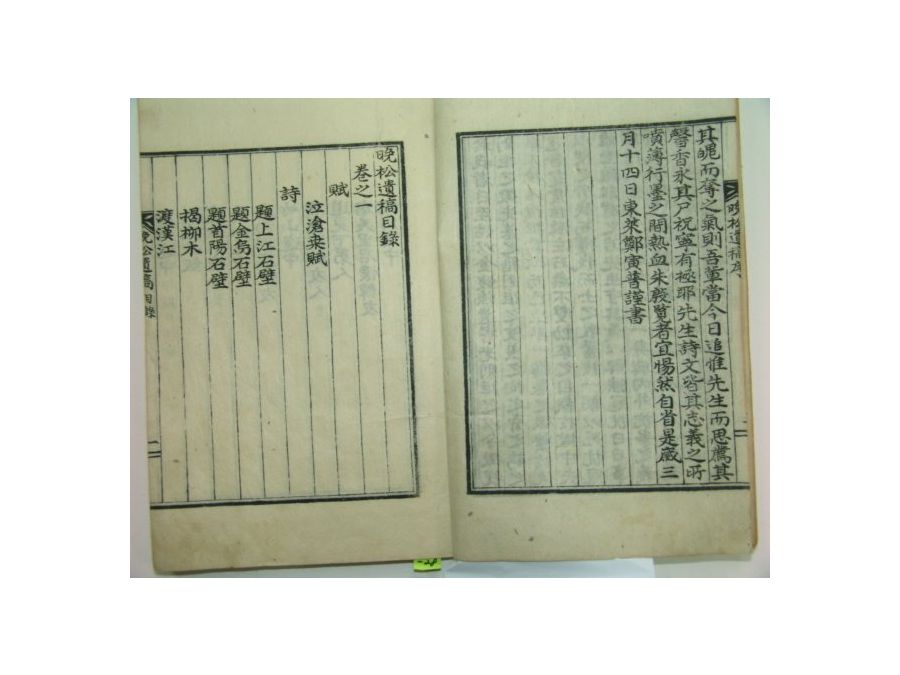 晩松遺稿序
其魄而奪之氣則吾輩當今日追惟先生而思薦其
馨香永其尸祝寧有極耶先生詩文皆其志義之所
噴薄行墨之間熱血朱殷覽者宜惕然自省是歲三
月十四日東萊鄭寅普謹書
二
晩松遺稿目錄
卷之一
賦
泣滄桒賦
詩
題上江石壁
題金烏石壁
題首陽石壁
褐柳木
渡漢江
晩松遺稿 目錄
一